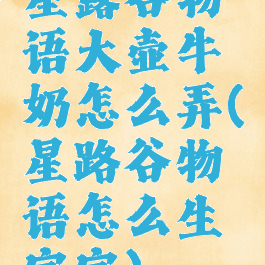 星露谷物
语大壶牛
奶怎么弄(
星路谷物
语怎么生